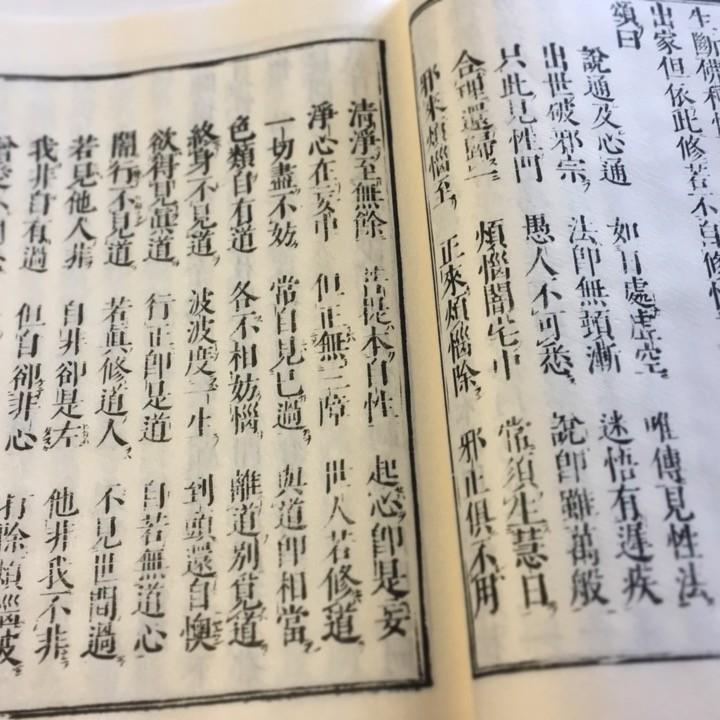 出家但依此修若不自修
頌曰
說通及心通 如日處虛空 唯傳見性法
出世破邪宗 法卽無頓漸 迷悟有遲疾
只此見性門 愚人不可悉 說卽雖萬般
合理還歸一 煩惱闇宅中 常須生慧日
邪來煩惱至 正來煩惱除 邪正俱不用
清淨至無餘 菩提本自性 起心卽是妄
淨心在妄中 但正無三障 世人若修道
一切盡不妨 常自見己過 與道卽相當
色類自有道 各不相妨惱 離道別覓道
終身不見道 波波度一生 到頭還自懊
欲得見眞道 行正卽是道 自若無道心
闇行不見道 若眞修道人 不見世間過
若見他人非 自非卻是左 他非我不非
我非自有過 但自卻非心 打除煩惱破